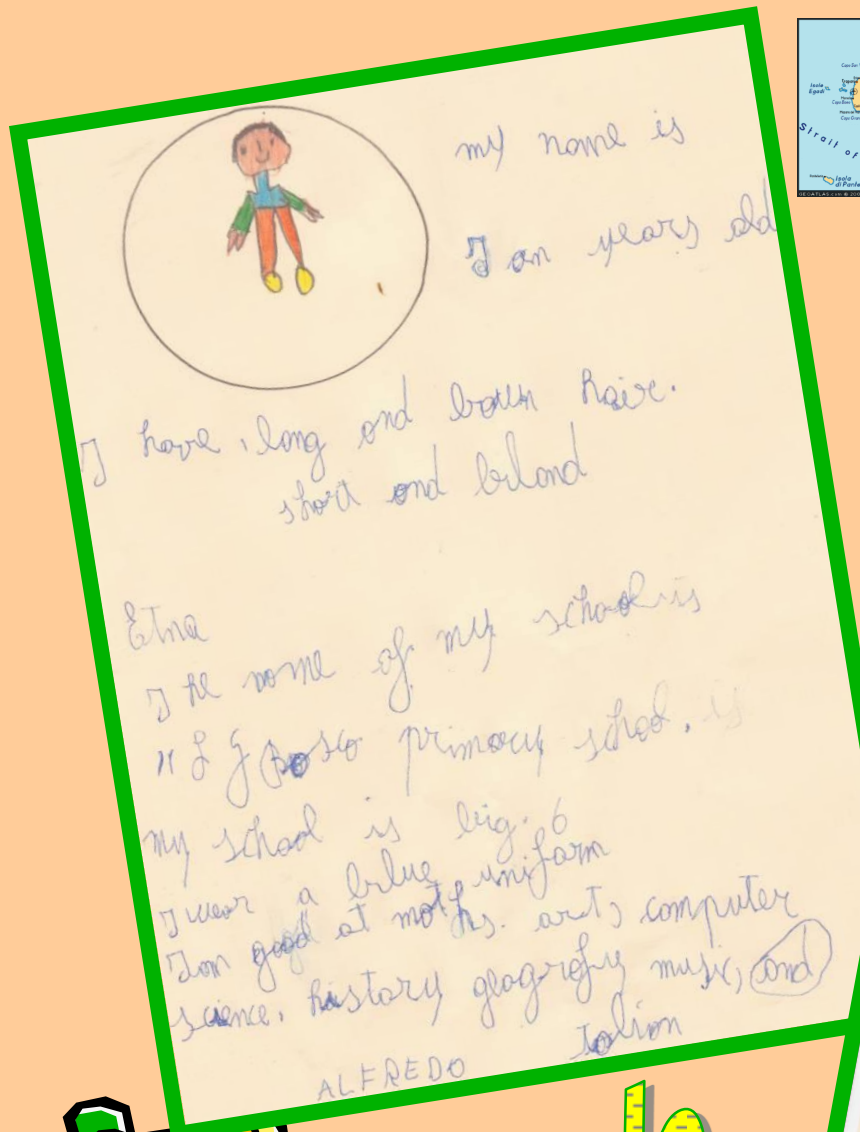 my name is
I am years old
I have, long and boun hair.
short and blond
Etna
The name of my school is
"S G Bosco primary school. is
my school is big. 6
I wear a blue uniform
I am good at moths. art, computer
science, history geografy music, and
Italian
ALFREDO
Strait of
Isola
Egadi
Isola
di Pante